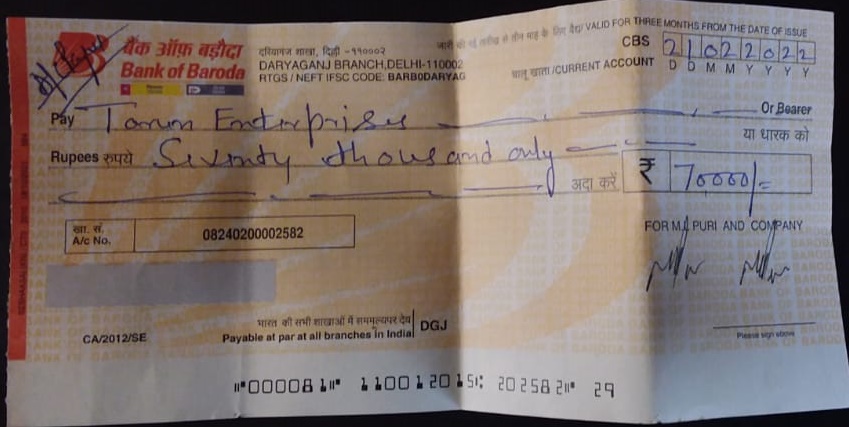 बैंक ऑफ़ बड़ौदा
Bank of Baroda
दरियागंज शाखा, दिल्ली -११०००२
DARYAGANJ BRANCH,DELHI-110002
RTGS / NEFT IFSC CODE: BARB0DARYAG
जारी की गई तारीख से तीन माह के लिए वैध/ VALID FOR THREE MONTHS FROM THE DATE OF ISSUE
CBS 21022022
D D M M Y Y Y Y
चालू खाता /CURRENT ACCOUNT
A/c Payee
Pay Tarun Enterprises Or Bearer
या धारक को
Rupees रुपये Seventy thousand only
अदा करें ₹ 70000/=
खा. सं.
A/c No. 08240200002582
FOR M.L PURI AND COMPANY
CA/2012/SE
भारत की सभी शाखाओं में सममूल्यपर देय
Payable at par at all branches in India DGJ
Please sign above
⑈000081⑈ 110012015⑆ 202582⑈ 29